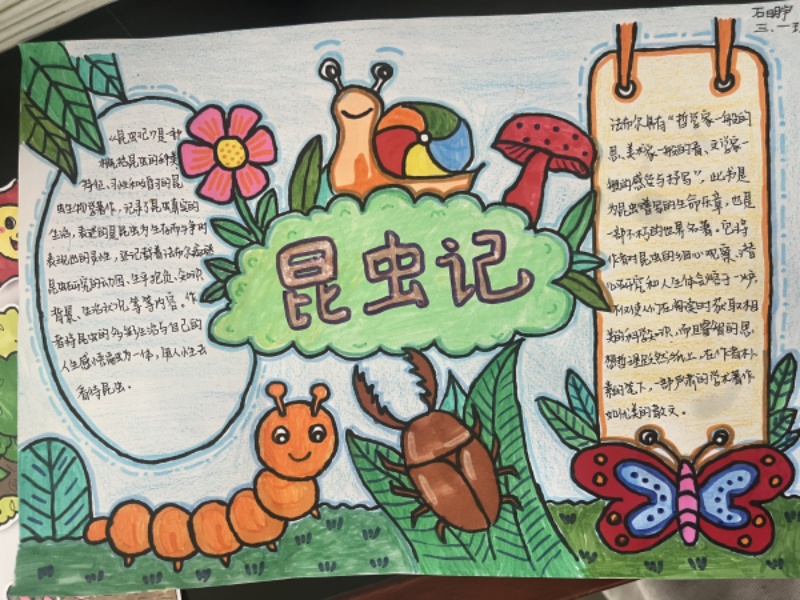 石明宇
三.一班
昆虫记
《昆虫记》是一种
概括昆虫的种类
特征、习性和婚习的昆
虫生物学著作，记录了昆虫真实的
生活，表述的是昆虫为生存而斗争时
表现出的灵性，还记载着法布尔痴迷
昆虫研究的动因、生平抱负、知识
背景、生活状况等等内容。作
者将昆虫的多彩生活与自己的
人生感悟融为一体，用人性去
看待昆虫。
法布尔具有“哲学家一般的
思、美术家一般的看、文学家一
般的感受与抒写”，此书是
为昆虫谱写的生命乐章，也是
一部不朽的世界名著。它将
作者对昆虫的细心观察、潜
心研究和人生体会熔于一炉
不仅使人们在阅读时获取相
关的科学知识，而且睿智的思
想哲理跃然纸上，在作者朴
素的笔下，一部严肃的学术著作
如优美的散文。